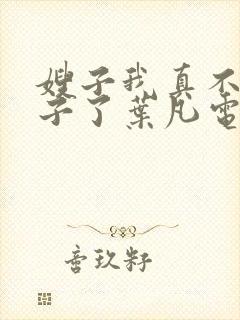 嫂子我真不
子了葉凡電
音玖籽